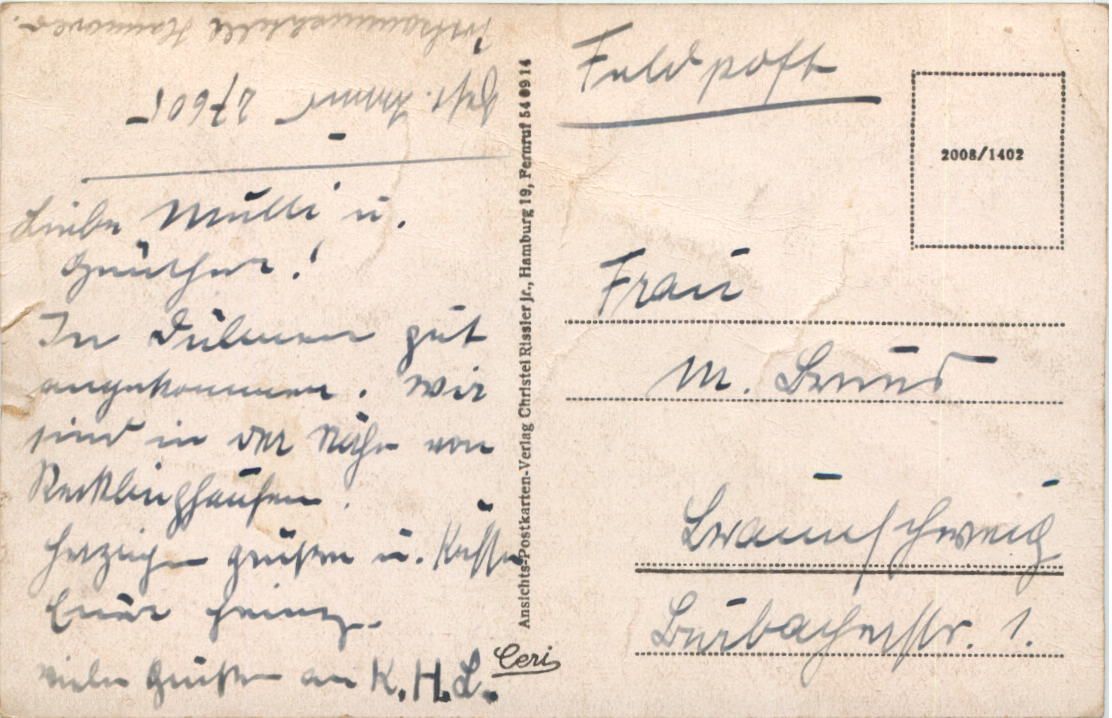 Feldpost
2008/1402
Frau
M. Bruns
Braunschweig
Burbacherstr. 1.
Ansichts-Postkarten-Verlag Christel Rissler jr., Hamburg 19, Fernruf 54 09 14
Ceri
Postsammelstelle Hannover.
Liebe Mutti u.
Günther!
In Dülmen gut
angekommen. Wir
sind in der Nähe von
Recklinghausen.
Herzige Grüßen u. Küsse
Euer Heinz.
viele Grüßen an K.H.L.